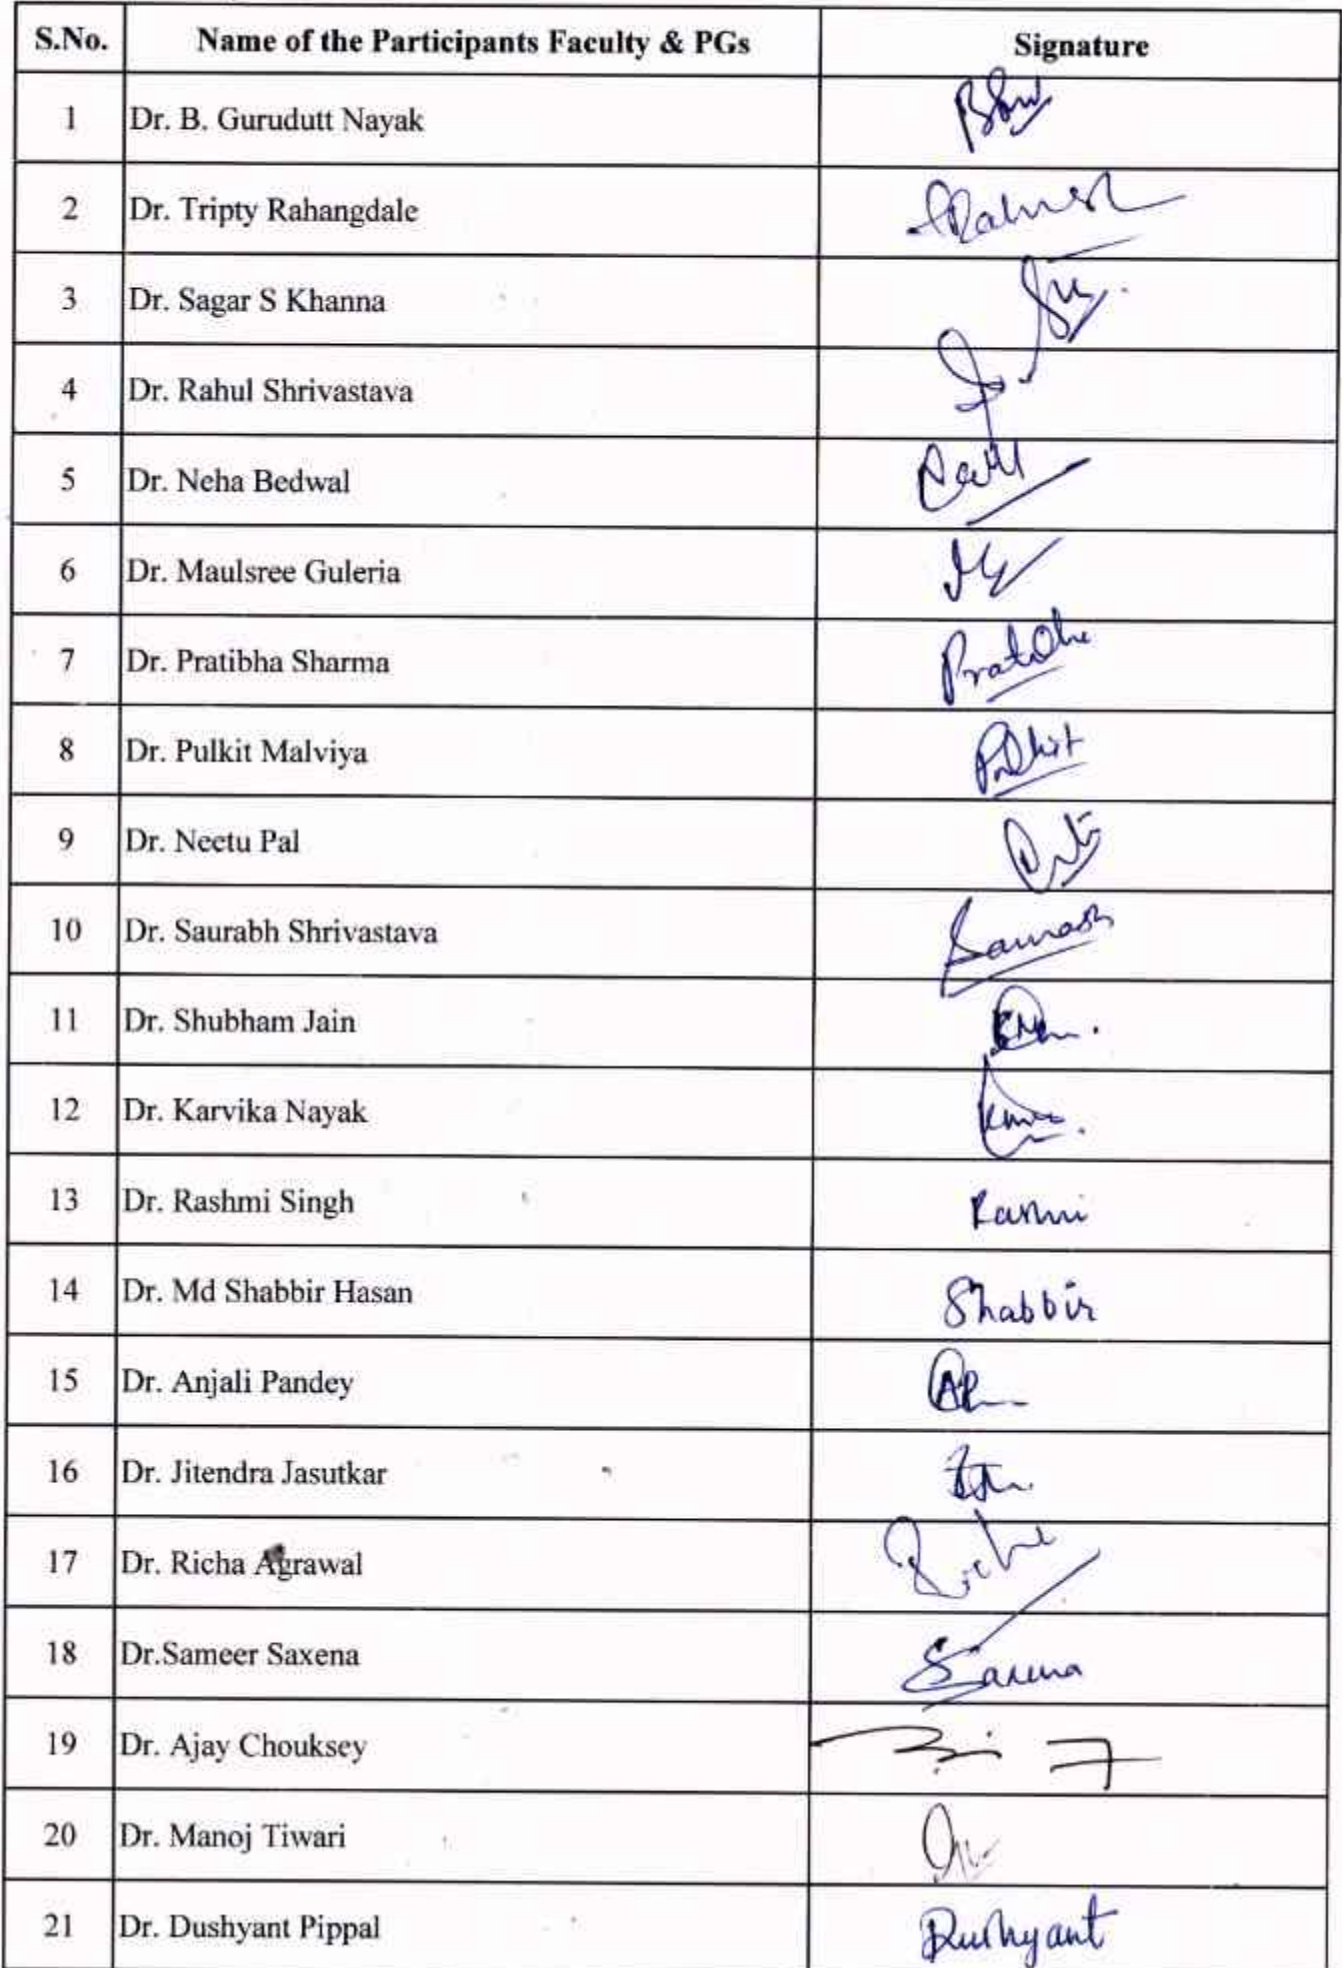 S.No. Name of the Participants Faculty & PGs Signature
1 Dr. B. Gurudutt Nayak
2 Dr. Tripty Rahangdale
3 Dr. Sagar S Khanna
4 Dr. Rahul Shrivastava
5 Dr. Neha Bedwal
6 Dr. Maulsree Guleria
7 Dr. Pratibha Sharma
8 Dr. Pulkit Malviya Pulkit
9 Dr. Neetu Pal
10 Dr. Saurabh Shrivastava
11 Dr. Shubham Jain
12 Dr. Karvika Nayak
13 Dr. Rashmi Singh Rashmi
14 Dr. Md Shabbir Hasan Shabbir
15 Dr. Anjali Pandey
16 Dr. Jitendra Jasutkar
17 Dr. Richa Agrawal Richa
18 Dr.Sameer Saxena Saxena
19 Dr. Ajay Chouksey
20 Dr. Manoj Tiwari
21 Dr. Dushyant Pippal Dushyant